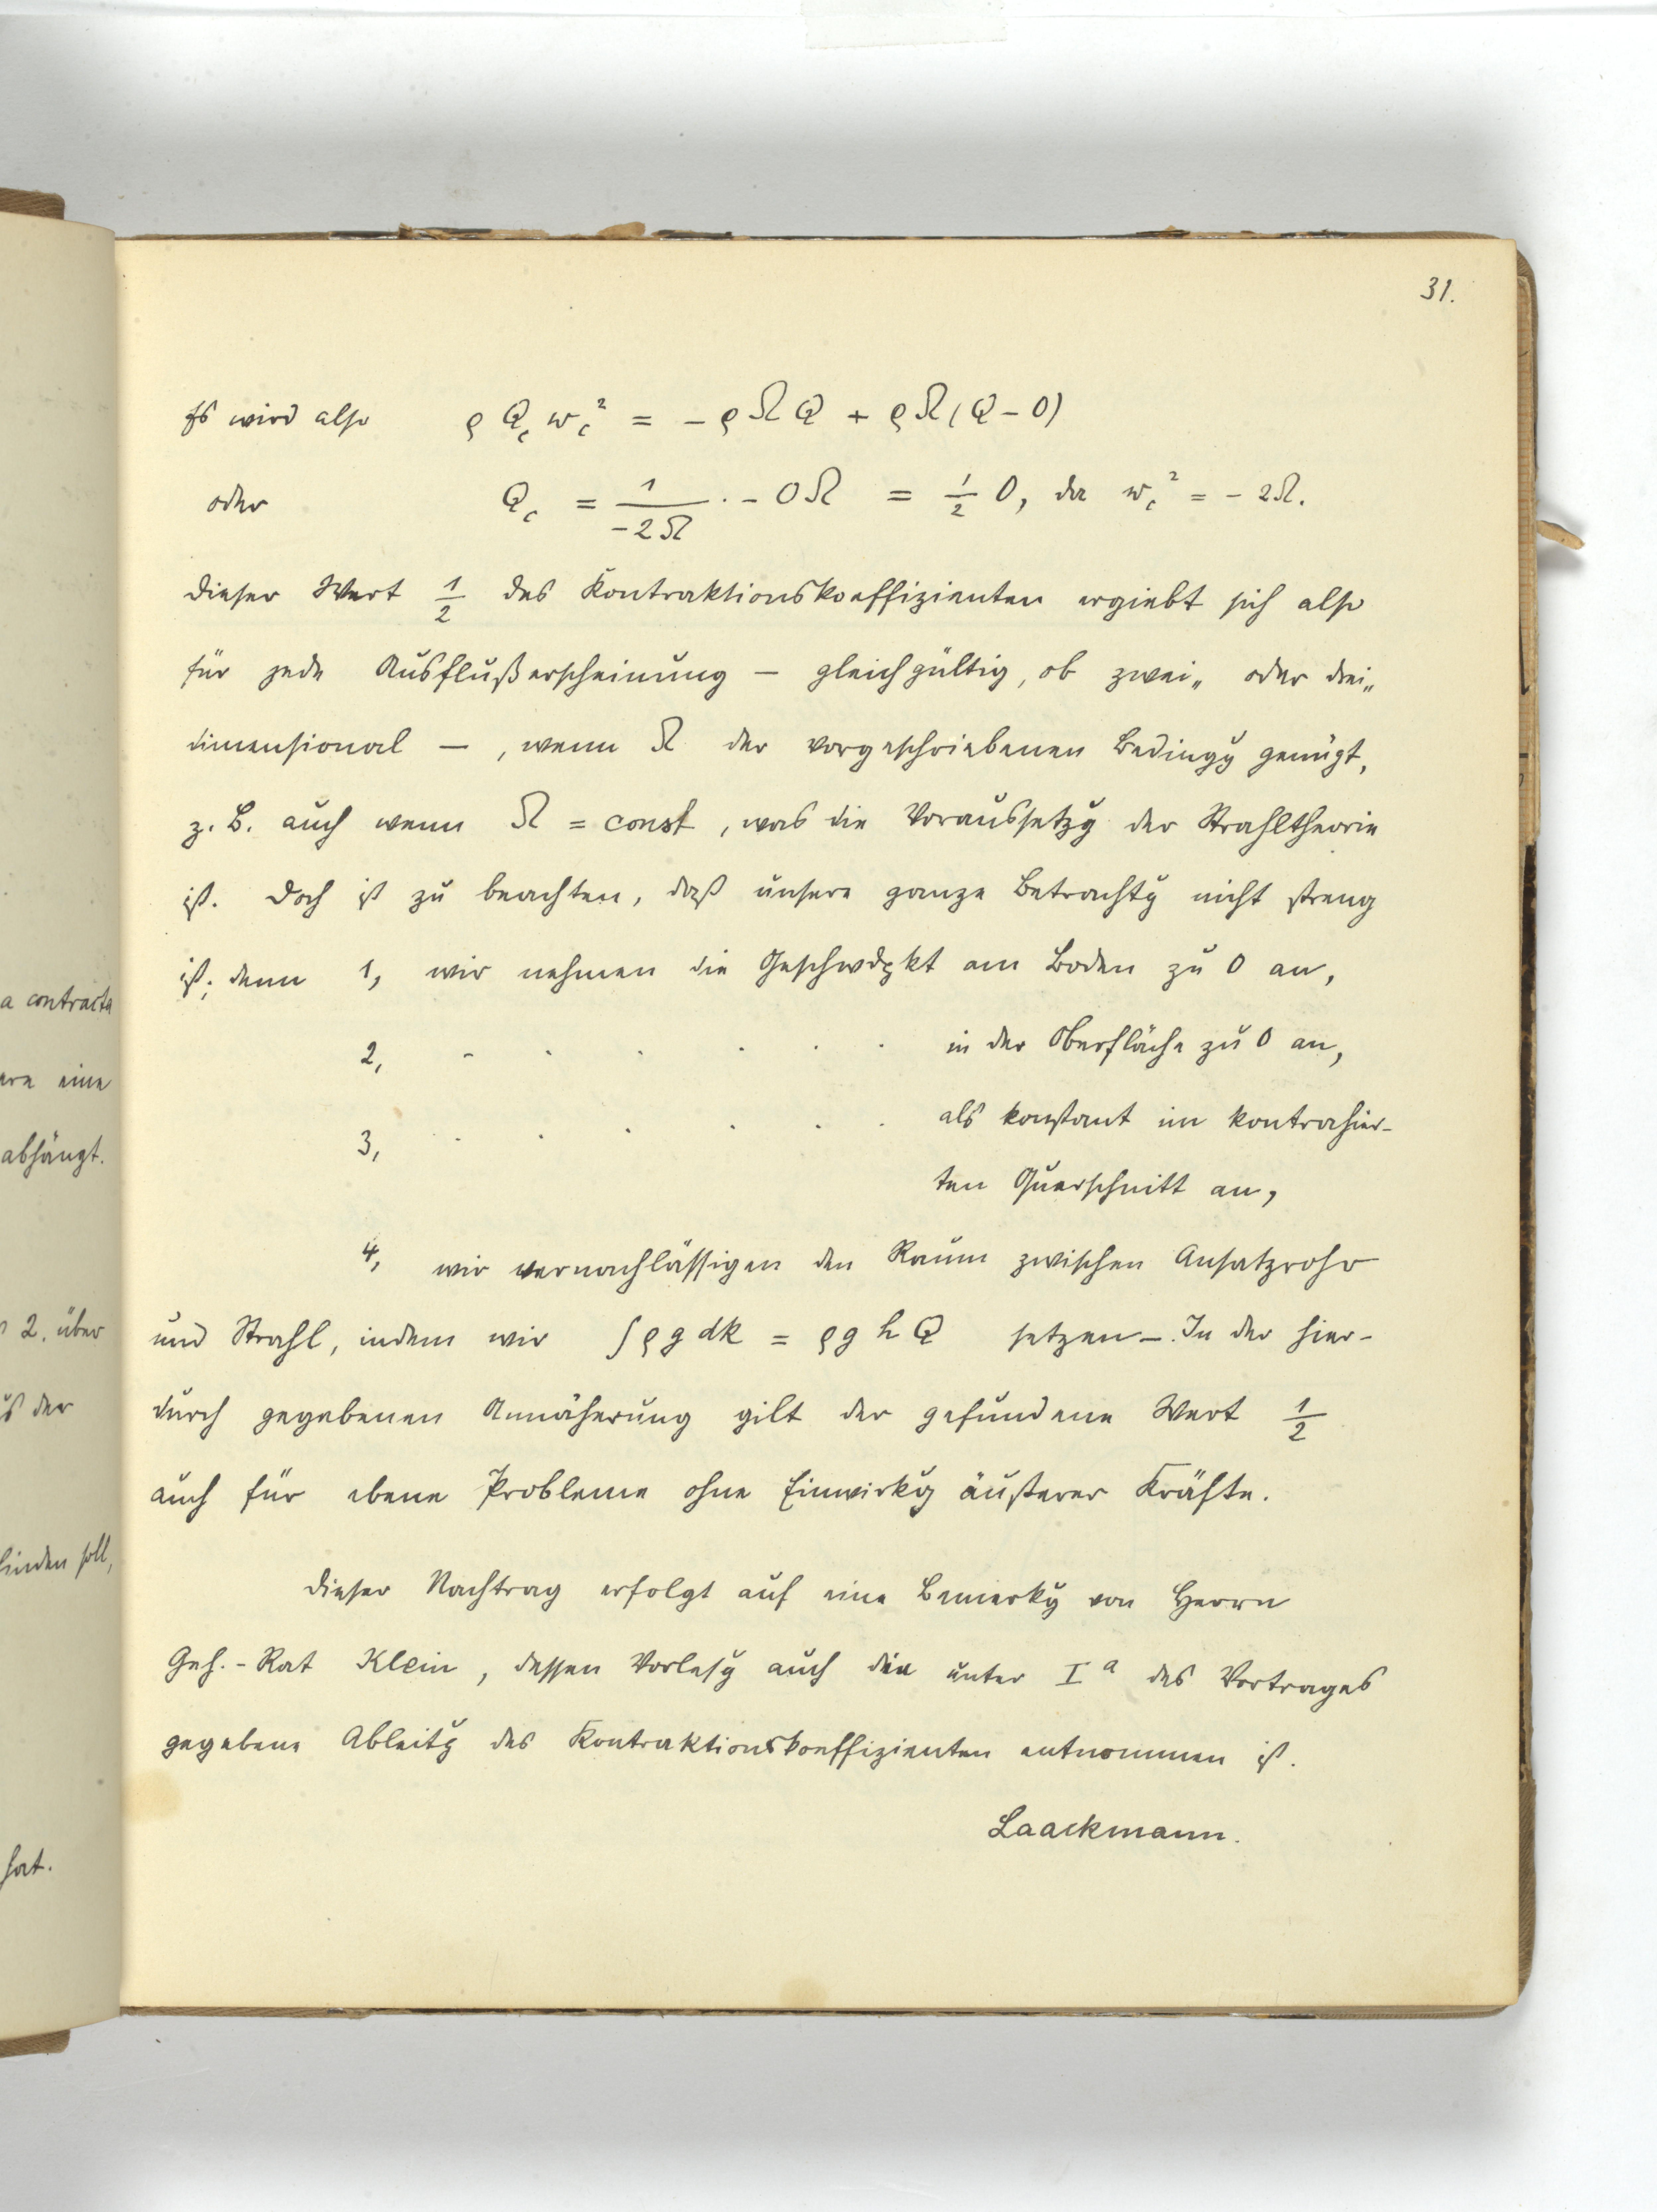 31.
Es wird also ϱ Q_c w_c² = − ϱ Ω Q + ϱ Ω (Q − O)
oder Q_c = 1/−2Ω · − O Ω = 1/2 O, da w_c² = − 2Ω.
Dieser Wert 1/2 des Kontraktionskoeffizienten ergiebt sich also
für jede Ausflußerscheinung — gleichgültig, ob zwei„ oder drei„
dimensional —, wenn Ω der vorgeschriebenen Bedingg genügt,
z. B. auch wenn Ω = const, was die Voraussetzg der Strahltheorie
ist. Doch ist zu beachten, daß unsere ganze Betrachtg nicht streng
ist; denn 1, wir nehmen die Geschwdgkt am Boden zu 0 an,
2, - · · · · · in der Oberfläche zu 0 an,
3, · · · · · · als konstant im kontrahier-
ten Querschnitt an,
4, wir vernachlässigen den Raum zwischen Ansatzrohr
und Strahl, indem wir ∫ ϱ g dk = ϱ g h Q setzen —. In der hier-
durch gegebenen Annäherung gilt der gefundene Wert 1/2
auch für ebene Probleme ohne Einwirkg äußerer Kräfte.
Dieser Nachtrag erfolgt auf eine Bemerkg von Herrn
Geh.-Rat Klein, dessen Vorlesg auch die unter I a des Vortrages
gegebene Ableitg des Kontraktionskoeffizienten entnommen ist.
Laackmann.
a contracta
eine
abhängt.
2. über
der
finden soll,
hat.